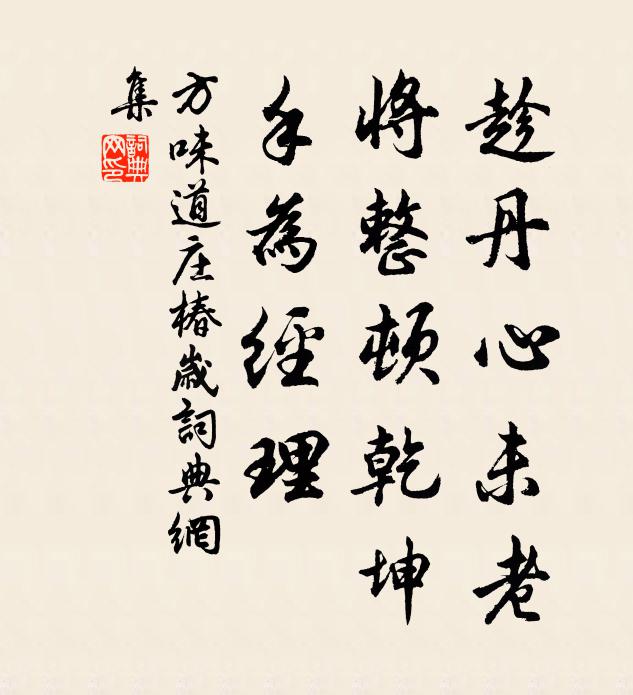 趁丹心未老
將整頓乾坤
手為經理
方味道庄椿歲詞典網
集
詞典
網印